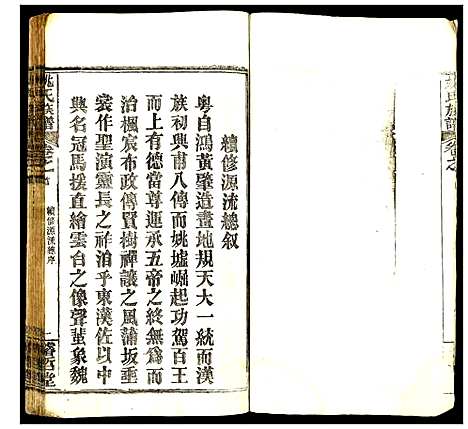 續修源流總叙
粤自鴻黃肇造畫地規天大一統而漢
族初興甫八傳而姚墟崛起功駕百王
而上有德當尊運承五帝之終無為而
治楓宸布政傳賢樹禪讓之風蒲坂垂
裳作聖演靈長之祚洎乎東漢佐以中
興名冠馬援直繪雲台之像聲蜚象魏
姚氏族譜
續修源流總序
一
睿哲堂
氏族譜